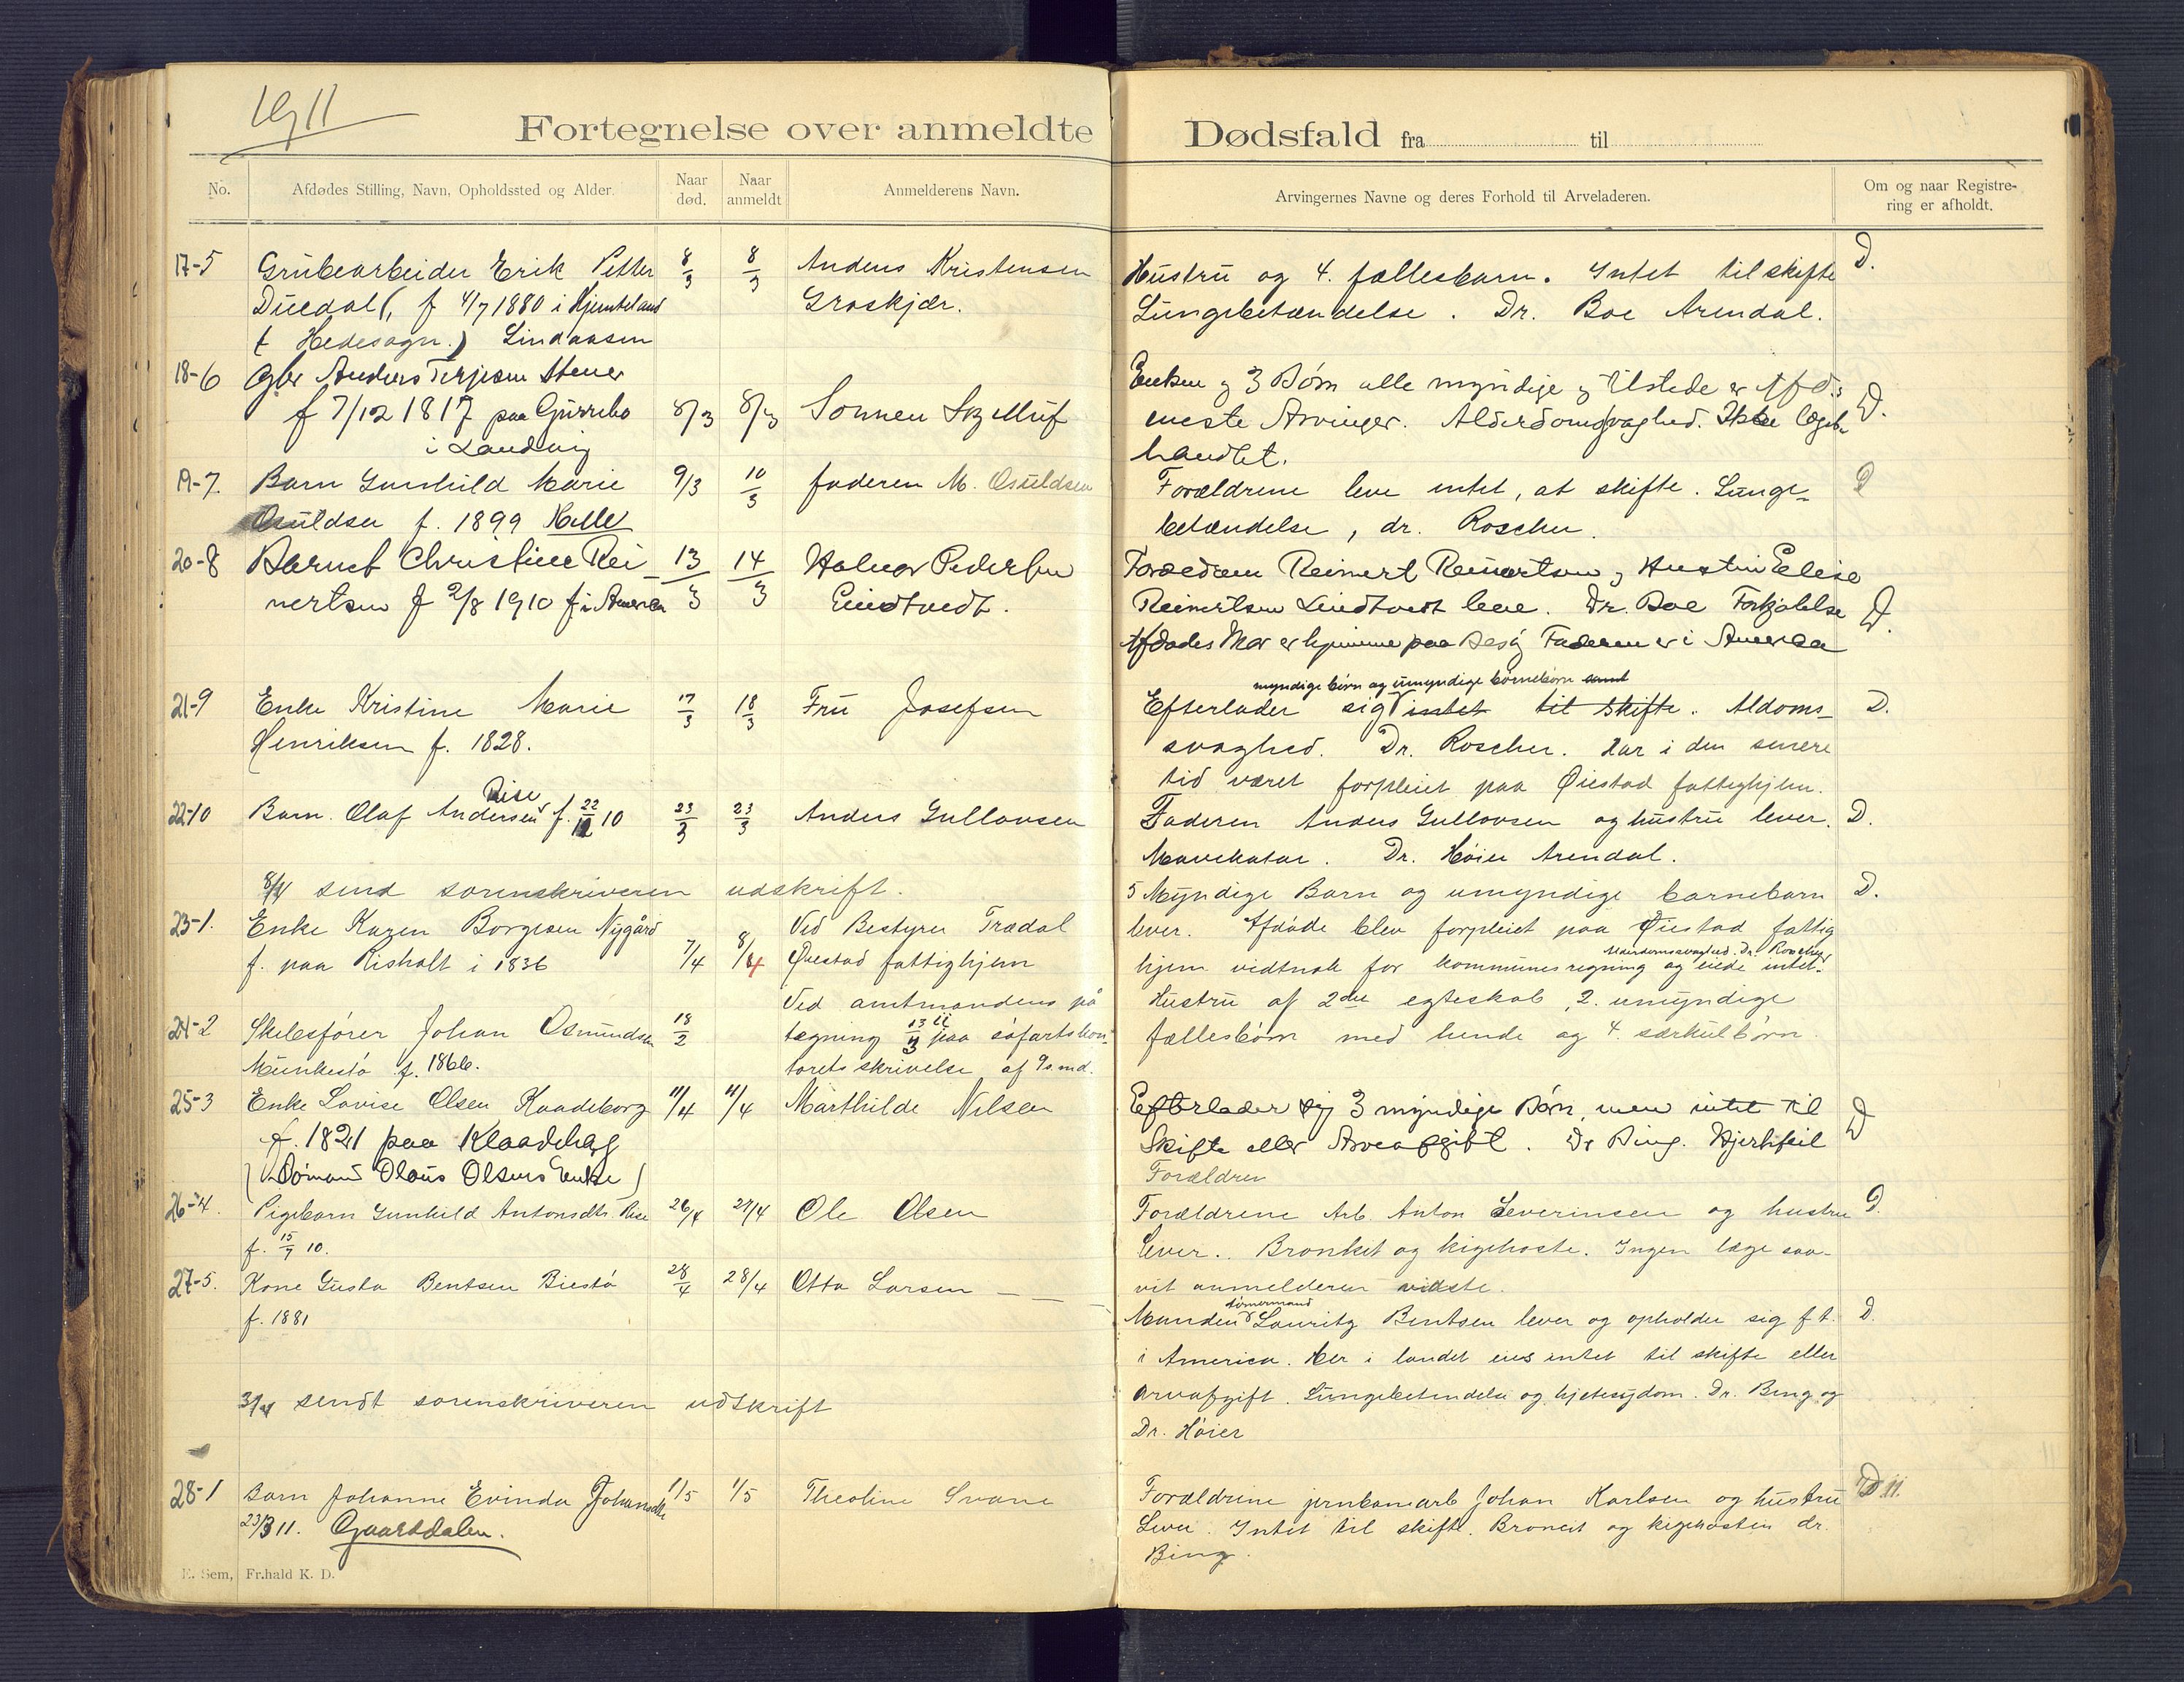 1911
Fortegnelse over anmeldte Dødsfald fra til
No.
Afdødes Stilling, Navn, Opholdssted og Alder.
Naar død.
Naar anmeldt
Anmelderens Navn.
Arvingernes Navne og deres Forhold til Arveladeren.
Om og naar Registrering er afholdt.
17-5 Grubearbeider Erik Petter 8/3 8/3 Anders Kristensen Hustru og 4. fællesbarn. Intet til skifte D.
Duedal (, f 4/7 1880 i Groskjær. Lungebetændelse. Dr. Boe Arendal.
( Hedesogn.) Lindaasen
18-6 Gbr Anders Terjesen Stener Enken og 3 Børn alle myndige og tilstede er Afd.s
f 7/12 1817 paa Gurrebo 8/3 8/3 Sønnen neste Arvinger. Alderdomsvaghed. Ikke lægebe- D.
i Landvig handlet.
19-7. Barn Gunhild Marie 9/3 10/3 faderen M. Osuldsen Forældrene leve intet, at skifte. Lunge- D
Osuldsen f. 1899 betændelse, dr. Roscher.
20-8 Barnet Christine Rei- 13/3 14/3 Halvor Pedersen Reinert Reinertsen og Hustru Elise
nertsen f 2/8 1910 f i America Lindtvedt. Reinertsen Lindtvedt leve. Dr. Boe Forkjølelse D.
Afdødes Mor er hjemme paa Besøg Faderen er i America
myndige børn og umyndige børnebørn samt
21-9 Enke Kristine Marie 17/3 18/3 Fru Josefsen Efterlader sig intet til skifte. Aldoms- D.
Henriksen f. 1828. svaghed. Dr. Roscher. Har i den senere
tid været forpleiet paa Øiestad fattighjem.
Rise
22-10 Barn Olaf Andersen f. 22/12 10 23/3 23/3 Anders Gullovsen Faderen Anders Gullovsen og hustru lever. D.
Mavekatar. Dr. Høier Arendal.
8/4 send sorenskriveren udskrift. 5 Myndige Barn og umyndige barnebarn D.
23-1. Enke Karen Borgesen Nygård Ved Bestyrer Trædal lever. Afdøde blev forpleiet paa Øiestad fattig
Alderdomssvaghed. Dr. Roscher
f. paa Risholt i 1836 7/4 8/4 Øiestad fattighjem hjem vidtnok for kommunes regning og eiede intet.
Ved amtmandens på Hustru af 2det egteskab, 2. umyndige
24-2 Skibsfører Johan Osmundsen 18/2 tegning paa søfartskon- fællesbørn med hende og 4. særkulbørn
f. 1866. torets skrivelse af md.
25-3 Enke Lovise Olsen Kaadeborg 11/4 11/4 Marthilde Nilsen Efterlader sig 3 myndige Børn, men intet til
f. 1821 paa Klaadeborg Skifte eller Arveafgift. Dr Bing. Hjertefeil D
(Sømand Olaus Olsens Enke) Forældren
26-4. Pigebarn Gunhild Antonsdtr. Rise 26/4 27/4 Ole Olsen Forældrene Arb. Anton Severinsen og hustru D.
f. 15/7 10. lever. Bronkit og kigehoste. Ingen læge saa-
27-5. Kone Gusta Bentsen Biestø 28/4 28/4 Otto Larsen vit anmelderen vidste.
tømermand
f. 1881 Manden Lauritz Bentsen lever og opholder sig f t. D.
i America. Her i landet eies intet til skifte eller
31/4 sendt sorenskriveren udskrift arveafgift. Lungebetendelse og hjertesygdom. Dr. Bing og
Dr. Høier
28-1 Barn Johanne Evinda Johansdtr 1/5 1/5 Theoline Svane Forældrene jernbanearb Johan Karlsen og hustru D.
23/3 11. Gaarddalen. Lever. Intet til skifte. Broncit og kigehosten dr.
Bing.
E. Sem, Fr.hald K. D.